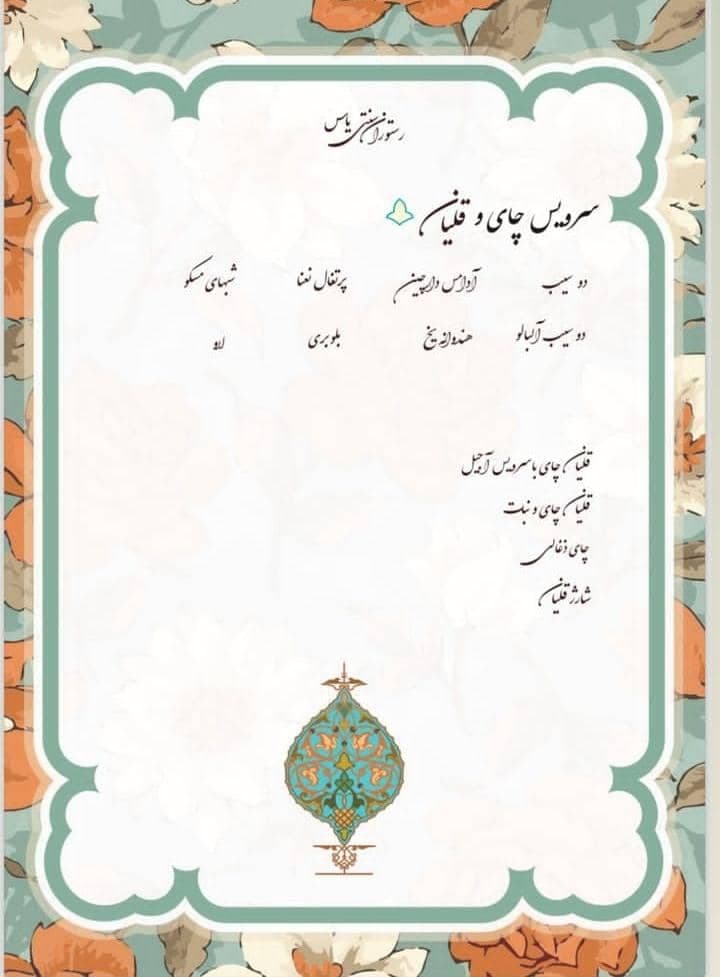 رستوران سنتی یاس
سرویس چای و قلیان
دو سیب آدامس دارچین پرتغال نعنا شبهای مسکو
دو سیب آلبالو هندوانه یخ بلوبری لاو
قلیان چای با سرویس آجیل
قلیان چای و نبات
چای ذغالی
شارژ قلیان